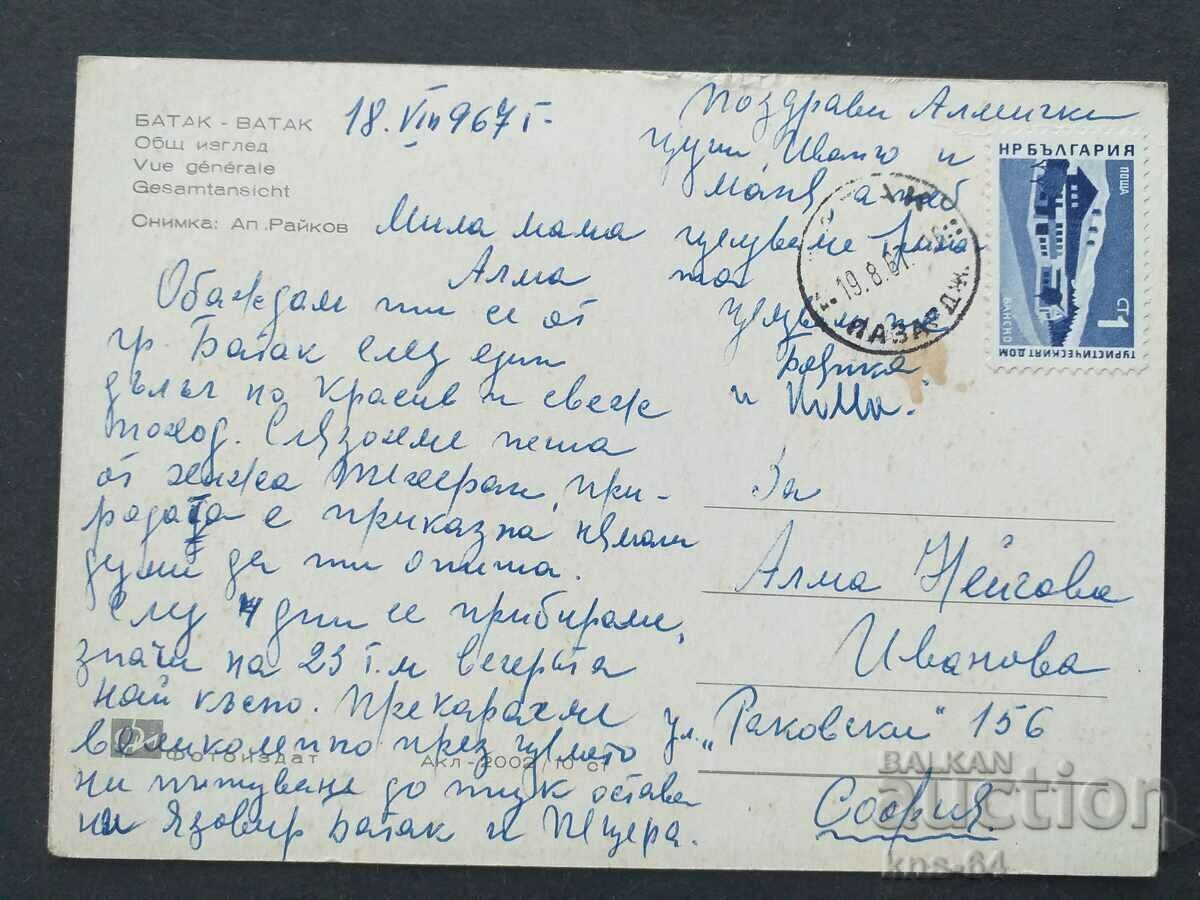 БАТАК - BATAK
Общ изглед
Vue générale
Gesamtansicht
Снимка: Ап. Райков
18. VIII 967 г.
Мила мама
Алма
Обаждам ти се от
гр. Батак след един
дълъг но красив и свеж
поход. Слязохме пеша
от хижа Техеран, при-
родата е приказна нямам
думи да ти опиша.
След 4 дни се прибираме,
значи на 23 т.м вечерта
най късно. Прекарахме
великолепно през цялото
ни пътуване до тук остава
ни Язовир Батак и Пещера.
Поздрави Алмички
цуни, Иванчо и
а теб
целуваме
и
За
Алма Нейчова
Иванова
ул. „Раковски" 156
София
НР БЪЛГАРИЯ
ПОЩА
БАНСКО
СТ 1
ТУРИСТИЧЕСКИЯТ ДОМ
19.8.67
ПАЗАРДЖ.
Фотоиздат
Акл-2002 10 ст
BALKAN
auction
kns-64